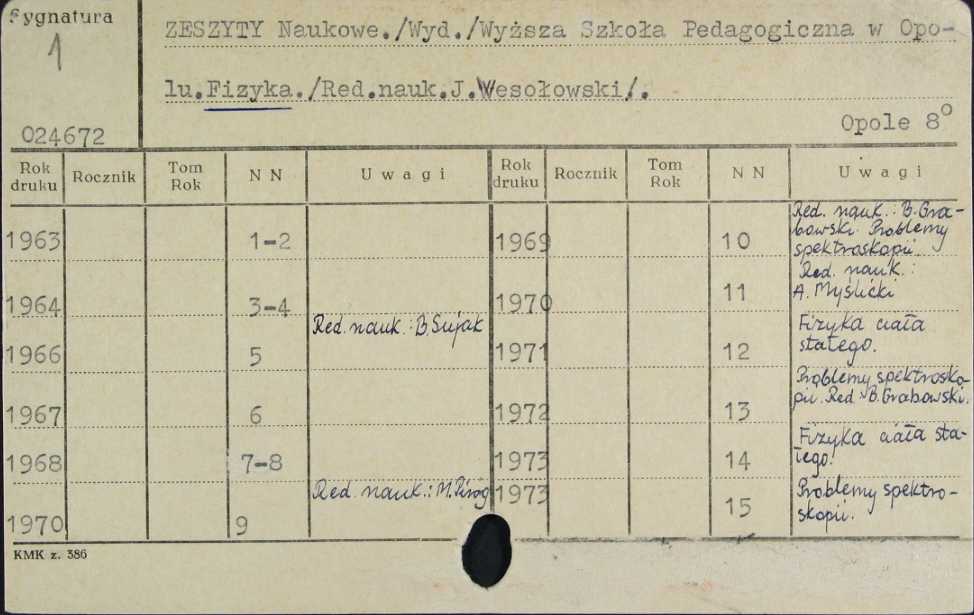 Sygnatura
1
024672
ZESZYTY Naukowe./Wyd./Wyższa Szkoła Pedagogiczna w Opo-
lu.Fizyka./Red.nauk.J.Wesołowski/.
Opole 8o
Rok druku Rocznik Tom Rok N N Uwagi Rok druku Rocznik Tom Rok N N Uwagi
1963 1-2 1969 10 Red. nauk.: B.Gra-
bowski. Problemy
spektroskopii.
1964 3-4 1970 11 Red. nauk.:
A. Myślicki
1966 5 Red. nauk.: B.Sujak 1971 12 Fizyka ciała
stałego.
1967 6 1972 13 Problemy spektrosko-
pii. Red. B.Grabowski.
1968 7-8 1973 14 Fizyka ciała sta-
łego.
1970 9 Red. nauk.: M.Piróg 1973 15 Problemy spektro-
skopii.
KMK z. 386